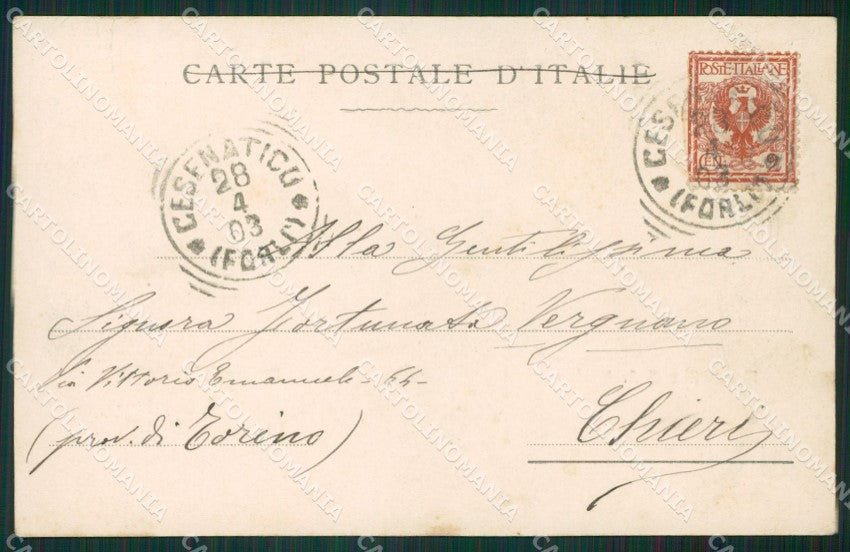 CARTE POSTALE D'ITALIE
POSTE·ITALIANE
CESENATICO
28
4
03
(FORLI)
CESENATICO
4
03
(FORLI)
CEN. 2
Alla Gentilissima
Signora Fortunata Vergnano
Via Vittorio Emanuele - 44 -
(prov. di Torino)
Chieri
CARTOLINOMANIA